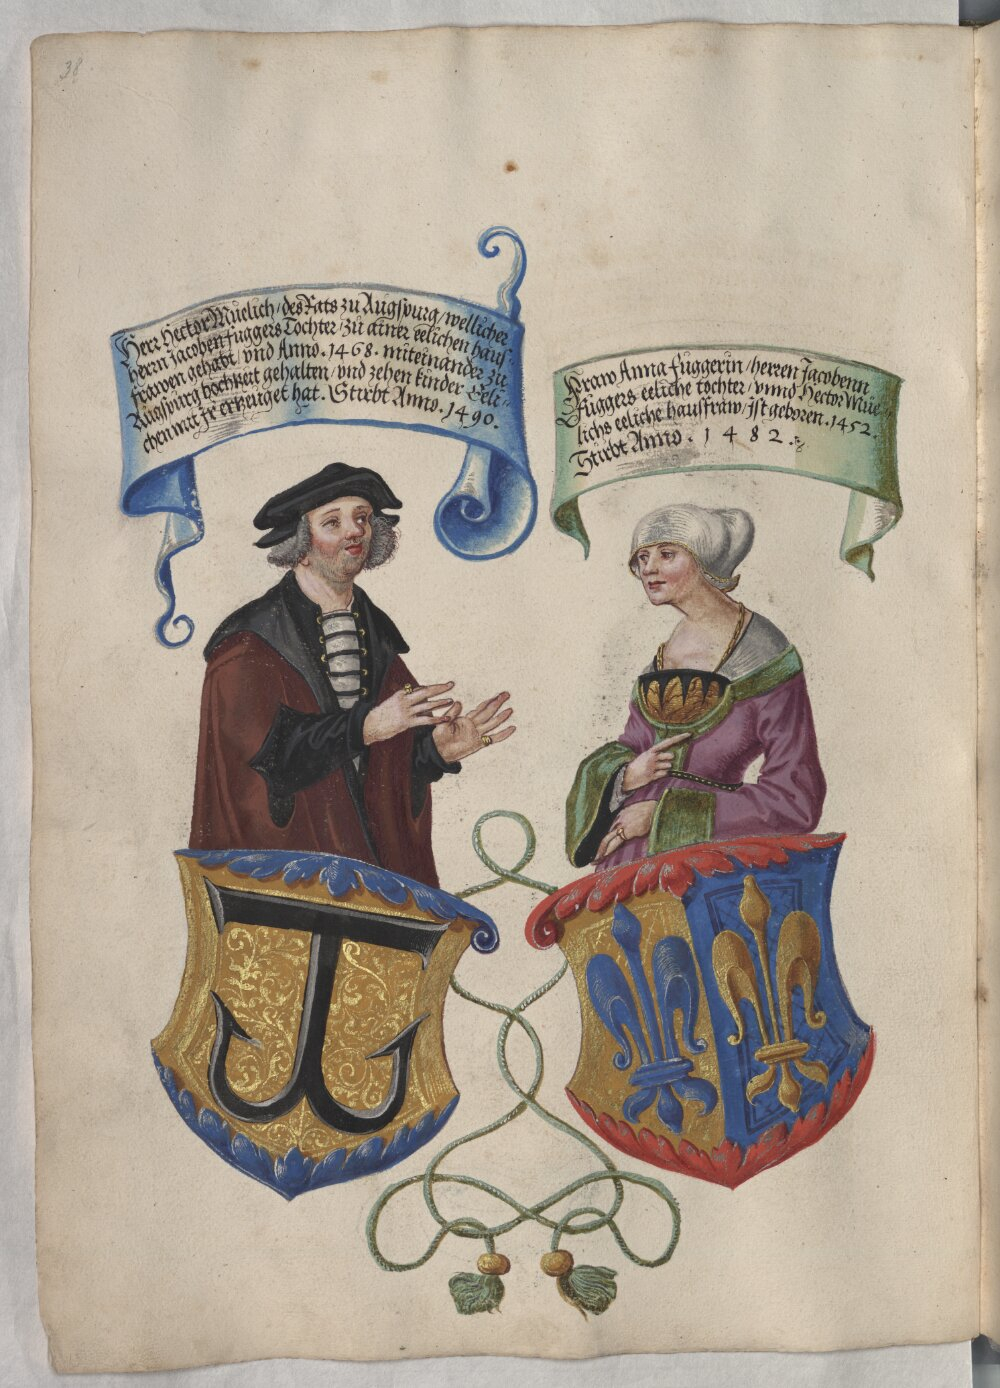 38
Herr Hector Müelich / des Rats zu Augspurg / wellicher
herrn Jacoben Fuggers Tochter / zu ainer eelichen haus-
frawen gehabt / vnd Anno . 1468 . miteinander zu
Augspurg hochzeit gehalten / vnd zehen kinder Eeli-
chen mit jr erzeuget hat . Stirbt Anno . 1490 .
Fraw Anna Fuggerin / herren Jacobenn
Fuggers eeliche tochter / vnnd Hector Müe-
lichs eeliche hausfraw / Ist geboren . 1452 .
Stirbt Anno . 1482 .